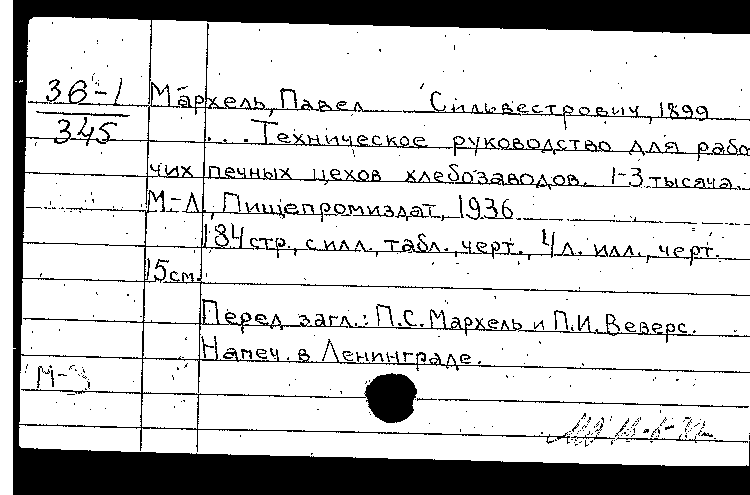 36-1
345
Мархель, Павел Сильвестрович, 1899
... Техническое руководство для рабо
чих печных цехов хлебозаводов. 1-3 тысяча.
М-Л, Пищепромиздат, 1936
184 стр., с илл., табл., черт., 4 л. илл., черт.
15 см.
Перед загл.: П.С. Мархель и П.И. Веверс.
Напеч. в Ленинграде.
М-3